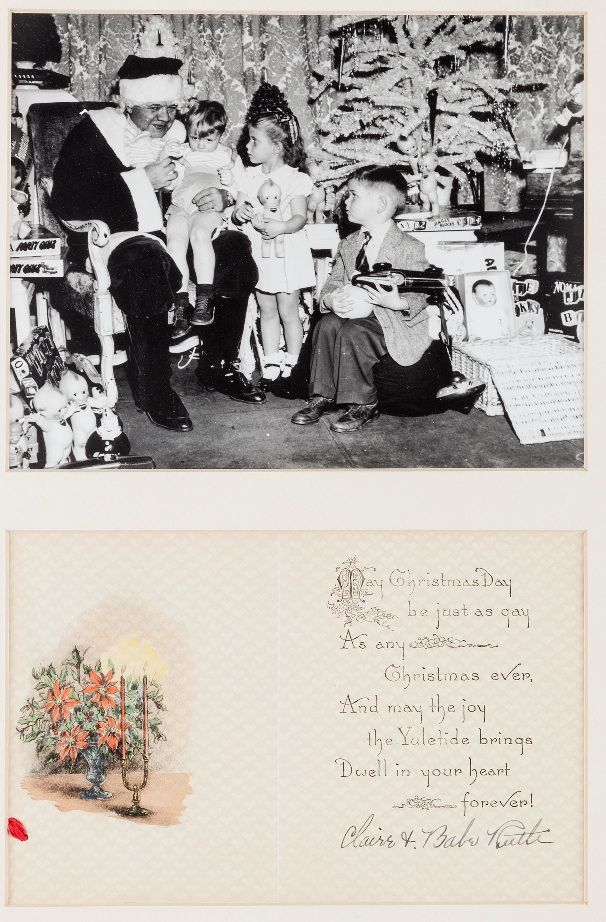 May Christmas Day
be just as gay
As any
Christmas ever,
And may the joy
the Yuletide brings
Dwell in your heart
forever!
Claire & Babe Ruth